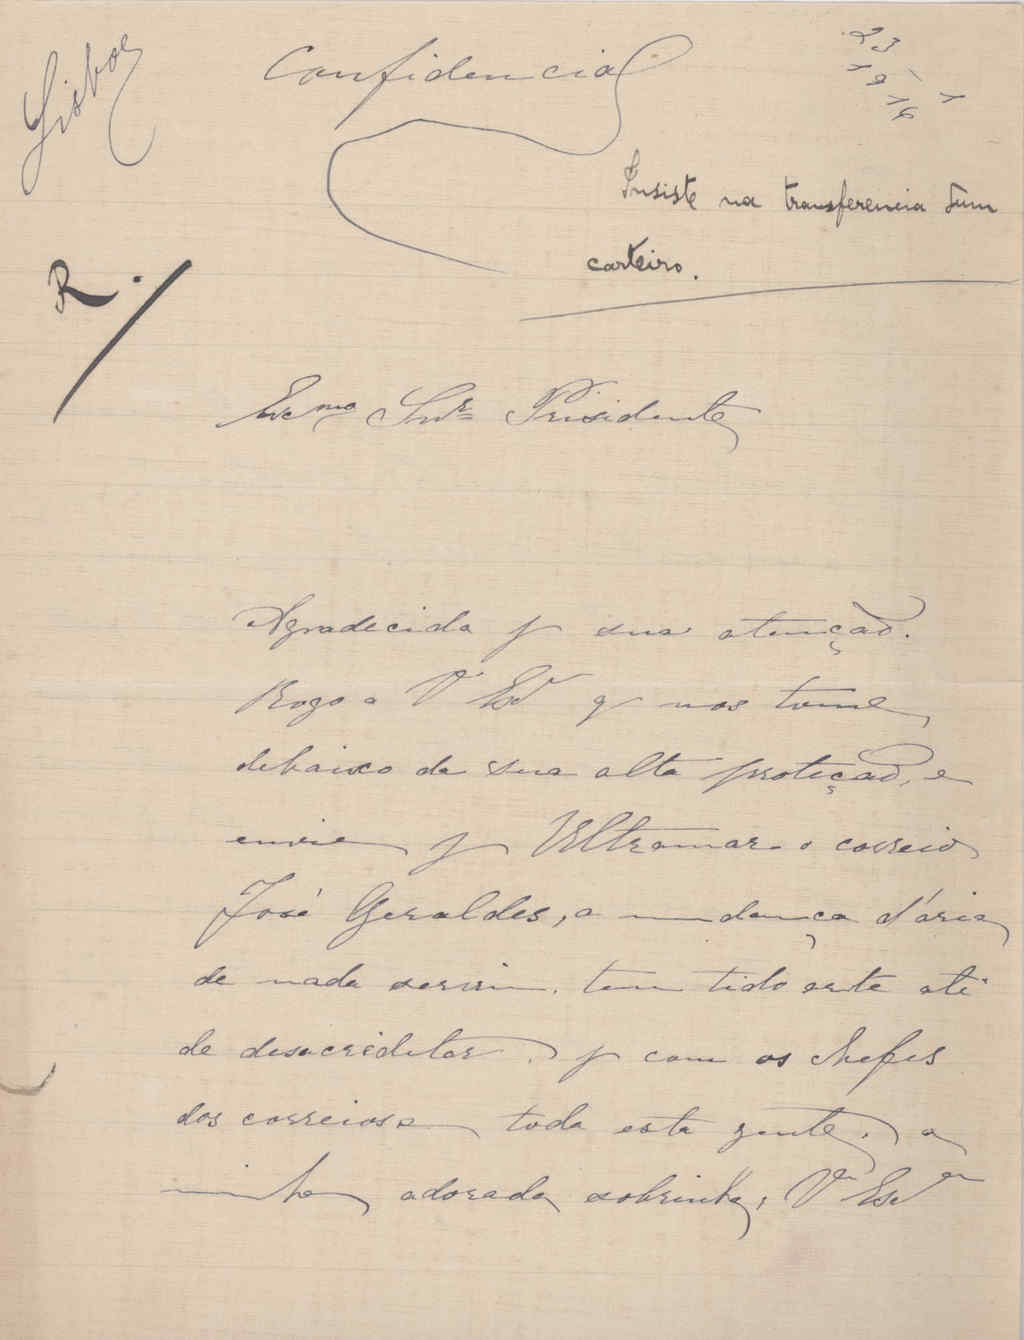 Lisboa
Confidencial
23-1
1916
Insiste na transferencia dum
carteiro.
R.
Exc.mo Snr. Prisidente
Agradecida p sua atenção.
Rogo a V Exª q nos tome
debaixo da sua alta proteção, e
envie p Ultramar o correio
José Geraldes, a mudança d'aria
de nada servin. tem tido arte até
de desacreditar p com os chefes
dos correios e toda esta gente, a
minha adorada sobrinha, Vª Exª